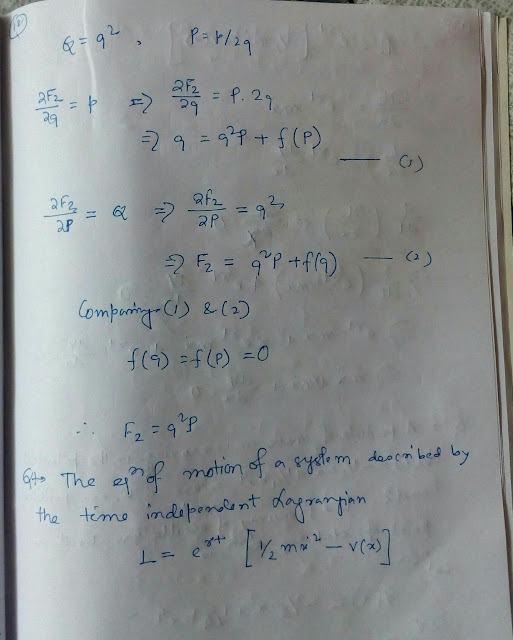 Q = q², P = p/2q
∂F₂/∂q = p ⇒ ∂F₂/∂q = P. 2q
⇒ q = q²P + f(P) — (1)
∂F₂/∂P = Q ⇒ ∂F₂/∂P = q²
⇒ F₂ = q²P + f(q) — (2)
Comparing (1) & (2)
f(q) = f(P) = 0
∴ F₂ = q²P
The eqⁿ of motion of a system described by
the time independent Lagrangian
L = e^{γt} [½ mẋ² – V(x)]